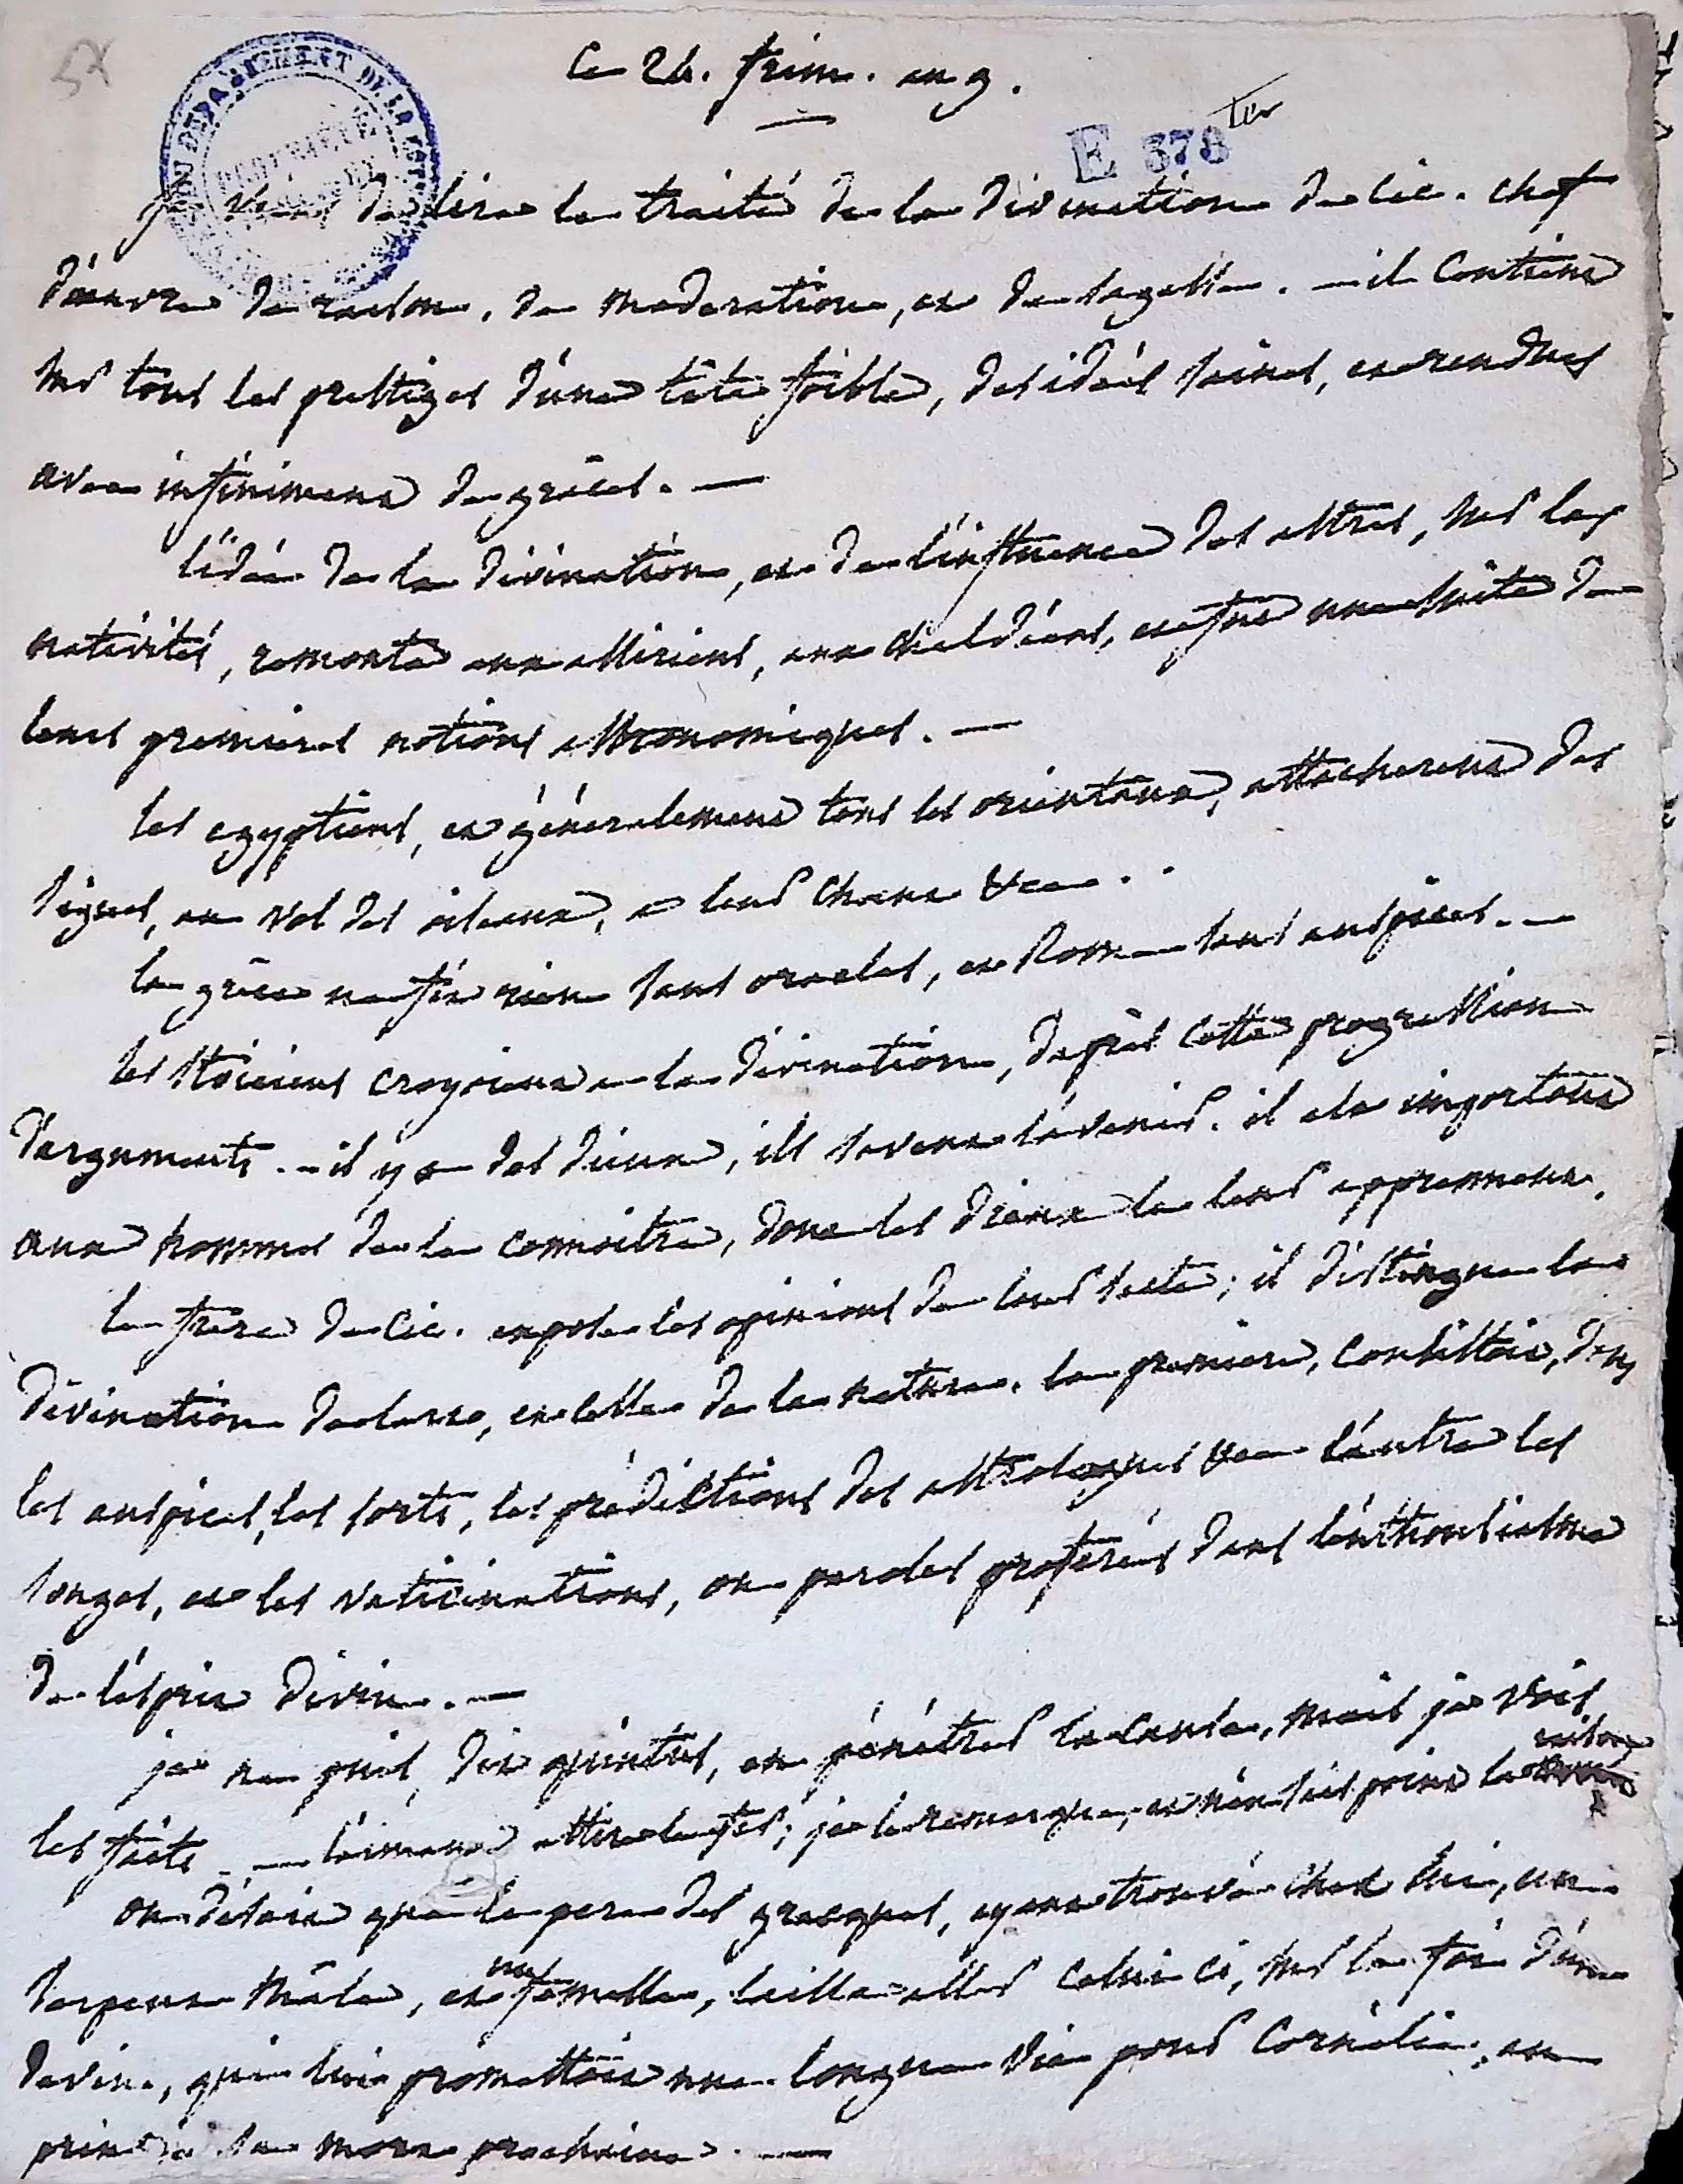 57
Ce 24. frim. an 9.
E 378 ter
je viens de lire le traité de la divination de Cic. chef
d'œuvre de raison, de moderation, et de sagesse. — il contient
sur tous les prestiges d'une tête foible, des idées saines, et rendues
avec infiniment de grâces. —
l'idée de la divination, et de l'influence des astres, sur les
nativités, remonte aux assiriens, aux chaldéens, et fut une suite de
leurs premieres notions astronomiques. —
les egyptiens, et généralement tous les orientaux, attacherent des
signes, au vol des oiseaux, a leur chant &c. . .
la grèce ne fit rien sans oracles, et Rome sans auspices. —
les stoïciens croyoient a la divination, d'après cette progression
d'arguments. — il y a des dieux, ils savent l'avenir. il est important
aux hommes de le connoitre, donc les dieux le leur apprennent.
le frère de Cic. expose les opinions de leur secte; il distingue la
divination de l'art, et celle de la nature. la premiere, consistoit, dans
les auspices, les sorts, les prédictions des astrologues &c. l'autre les
songes, et les vaticinations, ou paroles proférées dans l'enthousiasme
de l'esprit divin. —
je ne puis, dit quintus, en pénétrer la cause, mais je vois
les faits. — l'aimant attire le fer; je le remarque, et n'en sais point la
raison
on disait que le pere des gracques, ayant trouvé chez lui, un
serpent mâle, et une femelle, laissa aller celui ci, sur la foi d'un
devin, qui lui promettoit une longue vie pour Cornélie, au
prix de sa mort prochaine. —